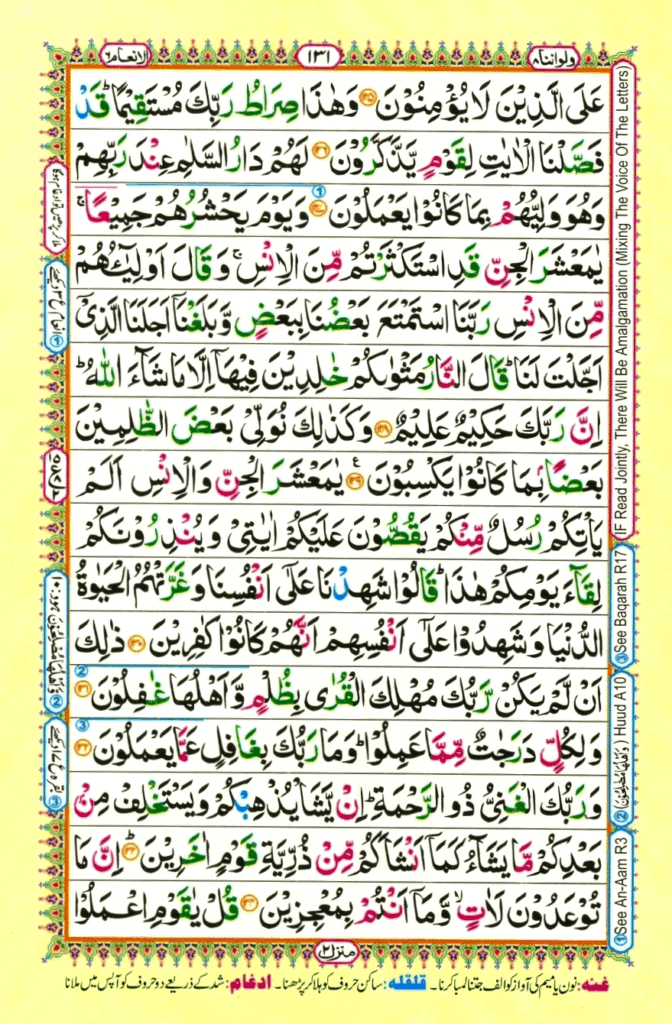 ولواننا ٨
١٣١
الانعام ٦
عَلَى الَّذِيْنَ لَا يُؤْمِنُوْنَ ﴿۱۲۵﴾ وَهٰذَا صِرَاطُ رَبِّكَ مُسْتَقِيْمًا ؕ قَدْ
فَصَّلْنَا الْاٰيٰتِ لِقَوْمٍ يَّذَّكَّرُوْنَ ﴿۱۲۶﴾ لَهُمْ دَارُ السَّلٰمِ عِنْدَ رَبِّهِمْ
وَهُوَ وَلِيُّهُمْ بِمَا كَانُوْا يَعْمَلُوْنَ ﴿۱۲۷﴾ وَيَوْمَ يَحْشُرُهُمْ جَمِيْعًا ۚ
يٰمَعْشَرَ الْجِنِّ قَدِ اسْتَكْثَرْتُمْ مِّنَ الْاِنْسِ ۚ وَقَالَ اَوْلِيٰٓـُٔهُمْ
مِّنَ الْاِنْسِ رَبَّنَا اسْتَمْتَعَ بَعْضُنَا بِبَعْضٍ وَّبَلَغْنَاۤ اَجَلَنَا الَّذِيْۤ
اَجَّلْتَ لَنَا ؕ قَالَ النَّارُ مَثْوٰىكُمْ خٰلِدِيْنَ فِيْهَاۤ اِلَّا مَا شَآءَ اللّٰهُ ؕ
اِنَّ رَبَّكَ حَكِيْمٌ عَلِيْمٌ ﴿۱۲۸﴾ وَكَذٰلِكَ نُوَلِّيْ بَعْضَ الظّٰلِمِيْنَ
بَعْضًۢا بِمَا كَانُوْا يَكْسِبُوْنَ ﴿۱۲۹﴾ ع يٰمَعْشَرَ الْجِنِّ وَالْاِنْسِ اَلَمْ
يَاْتِكُمْ رُسُلٌ مِّنْكُمْ يَقُصُّوْنَ عَلَيْكُمْ اٰيٰتِيْ وَيُنْذِرُوْنَكُمْ
لِقَآءَ يَوْمِكُمْ هٰذَا ؕ قَالُوْا شَهِدْنَا عَلٰۤى اَنْفُسِنَا وَغَرَّتْهُمُ الْحَيٰوةُ
الدُّنْيَا وَشَهِدُوْا عَلٰۤى اَنْفُسِهِمْ اَنَّهُمْ كَانُوْا كٰفِرِيْنَ ﴿۱۳۰﴾ ذٰلِكَ
اَنْ لَّمْ يَكُنْ رَّبُّكَ مُهْلِكَ الْقُرٰى بِظُلْمٍ وَّاَهْلُهَا غٰفِلُوْنَ ﴿۱۳۱﴾
وَلِكُلٍّ دَرَجٰتٌ مِّمَّا عَمِلُوْا ؕ وَمَا رَبُّكَ بِغَافِلٍ عَمَّا يَعْمَلُوْنَ ﴿۱۳۲﴾
وَرَبُّكَ الْغَنِيُّ ذُو الرَّحْمَةِ ؕ اِنْ يَّشَاْ يُذْهِبْكُمْ وَيَسْتَخْلِفْ مِنْۢ
بَعْدِكُمْ مَّا يَشَآءُ كَمَاۤ اَنْشَاَكُمْ مِّنْ ذُرِّيَّةِ قَوْمٍ اٰخَرِيْنَ ﴿۱۳۳﴾ اِنَّ مَا
تُوْعَدُوْنَ لَاٰتٍ ۙ وَّمَاۤ اَنْتُمْ بِمُعْجِزِيْنَ ﴿۱۳۴﴾ قُلْ يٰقَوْمِ اعْمَلُوْا
منزل ٢
غنه: نون یا میم کی آواز کو الف جتنا لمبا کرنا۔ قلقله: ساکن حروف کو ہلا کر پڑھنا۔ ادغام: شد کے ذریعے دو حروف کو آپس میں ملانا
IF Read Jointly, There Will Be Amalgamation (Mixing The Voice Of The Letters)
③See Baqarah R17
②(وَاَهْلُهَا مُصْلِحُوْنَ) Huud A10
①See An-Aam R3